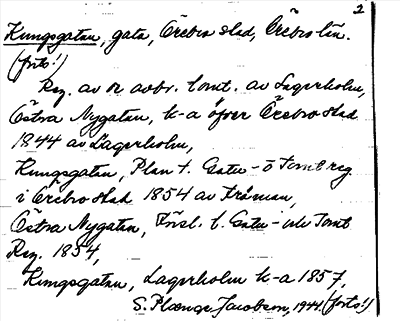 2
Kungsgatan, gata, Örebro stad, Örebro län.
(forts!)
Reg. av or avbr. tomt. av Lagerholm,
Östra Nygatan, k-a öfver Örebro stad
1844 av Lagerholm,
Kungsgatan, Plan t. Gatu- o Tomtreg
i Örebro stad 1854 av Fröman,
Östra Nygatan, Försl. t. Gatu- och Tomt
Reg. 1854,
Kungsgatan, Lagerholm k-a 1857,
S. Plænge Jacobson, 1941. (forts!)